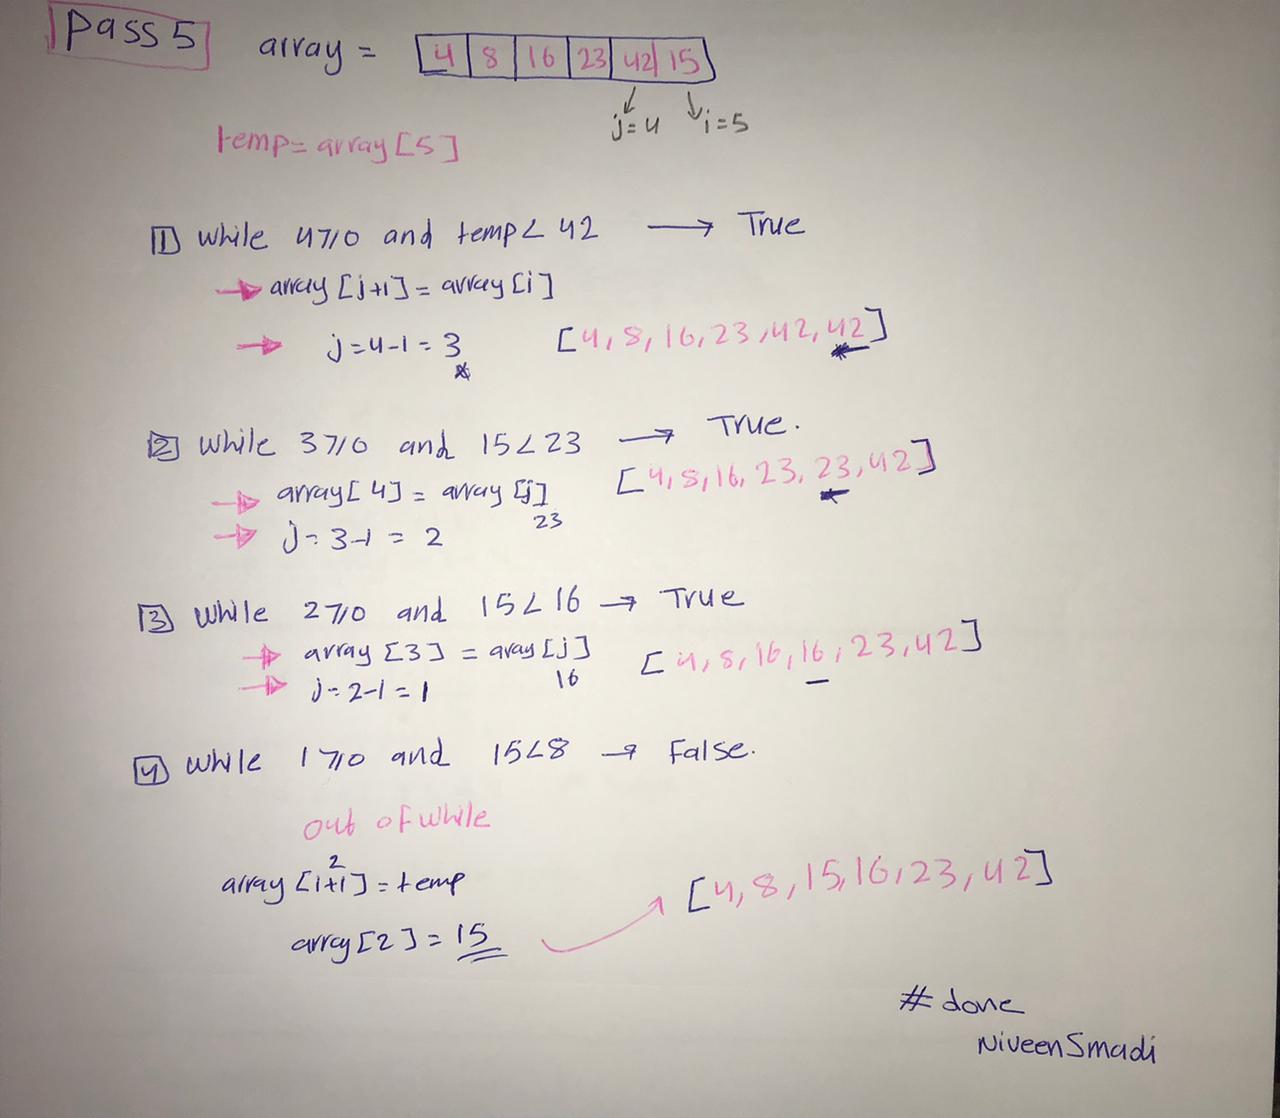 Pass 5
array = [4 | 8 | 16 | 23 | 42 | 15]
j=4 i=5
temp= array[5]
1 while 4≥0 and temp< 42 → True
→ array [j+1] = array [i]
→ j=4-1 = 3 [4, 8, 16, 23, 42, 42]
2 while 3≥0 and 15<23 → True.
→ array[4] = array [j] [4, 8, 16, 23, 23, 42]
23
→ j= 3-1 = 2
3 while 2≥0 and 15<16 → True
→ array [3] = aray [j] [4, 8, 16, 16, 23, 42]
16
→ j=2-1=1
4 while 1≥0 and 15<8 → False.
out of while
2
array [1+1] = temp
array[2] = 15 → [4, 8, 15, 16, 23, 42]
# done
Niveen Smadi